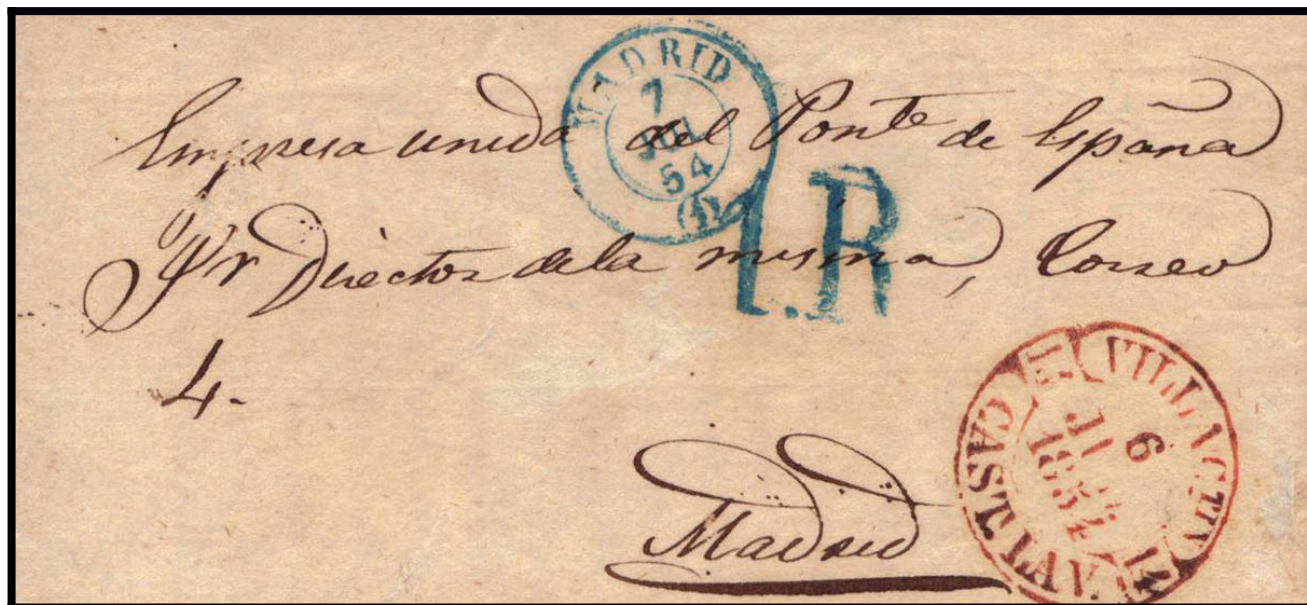 MADRID
7
JUL
54
(1)
Empresa unida del Ponte de España
Sr Director dela misma, Correo
1.R
4-
Madrid
6
1854
CAST. LA V.